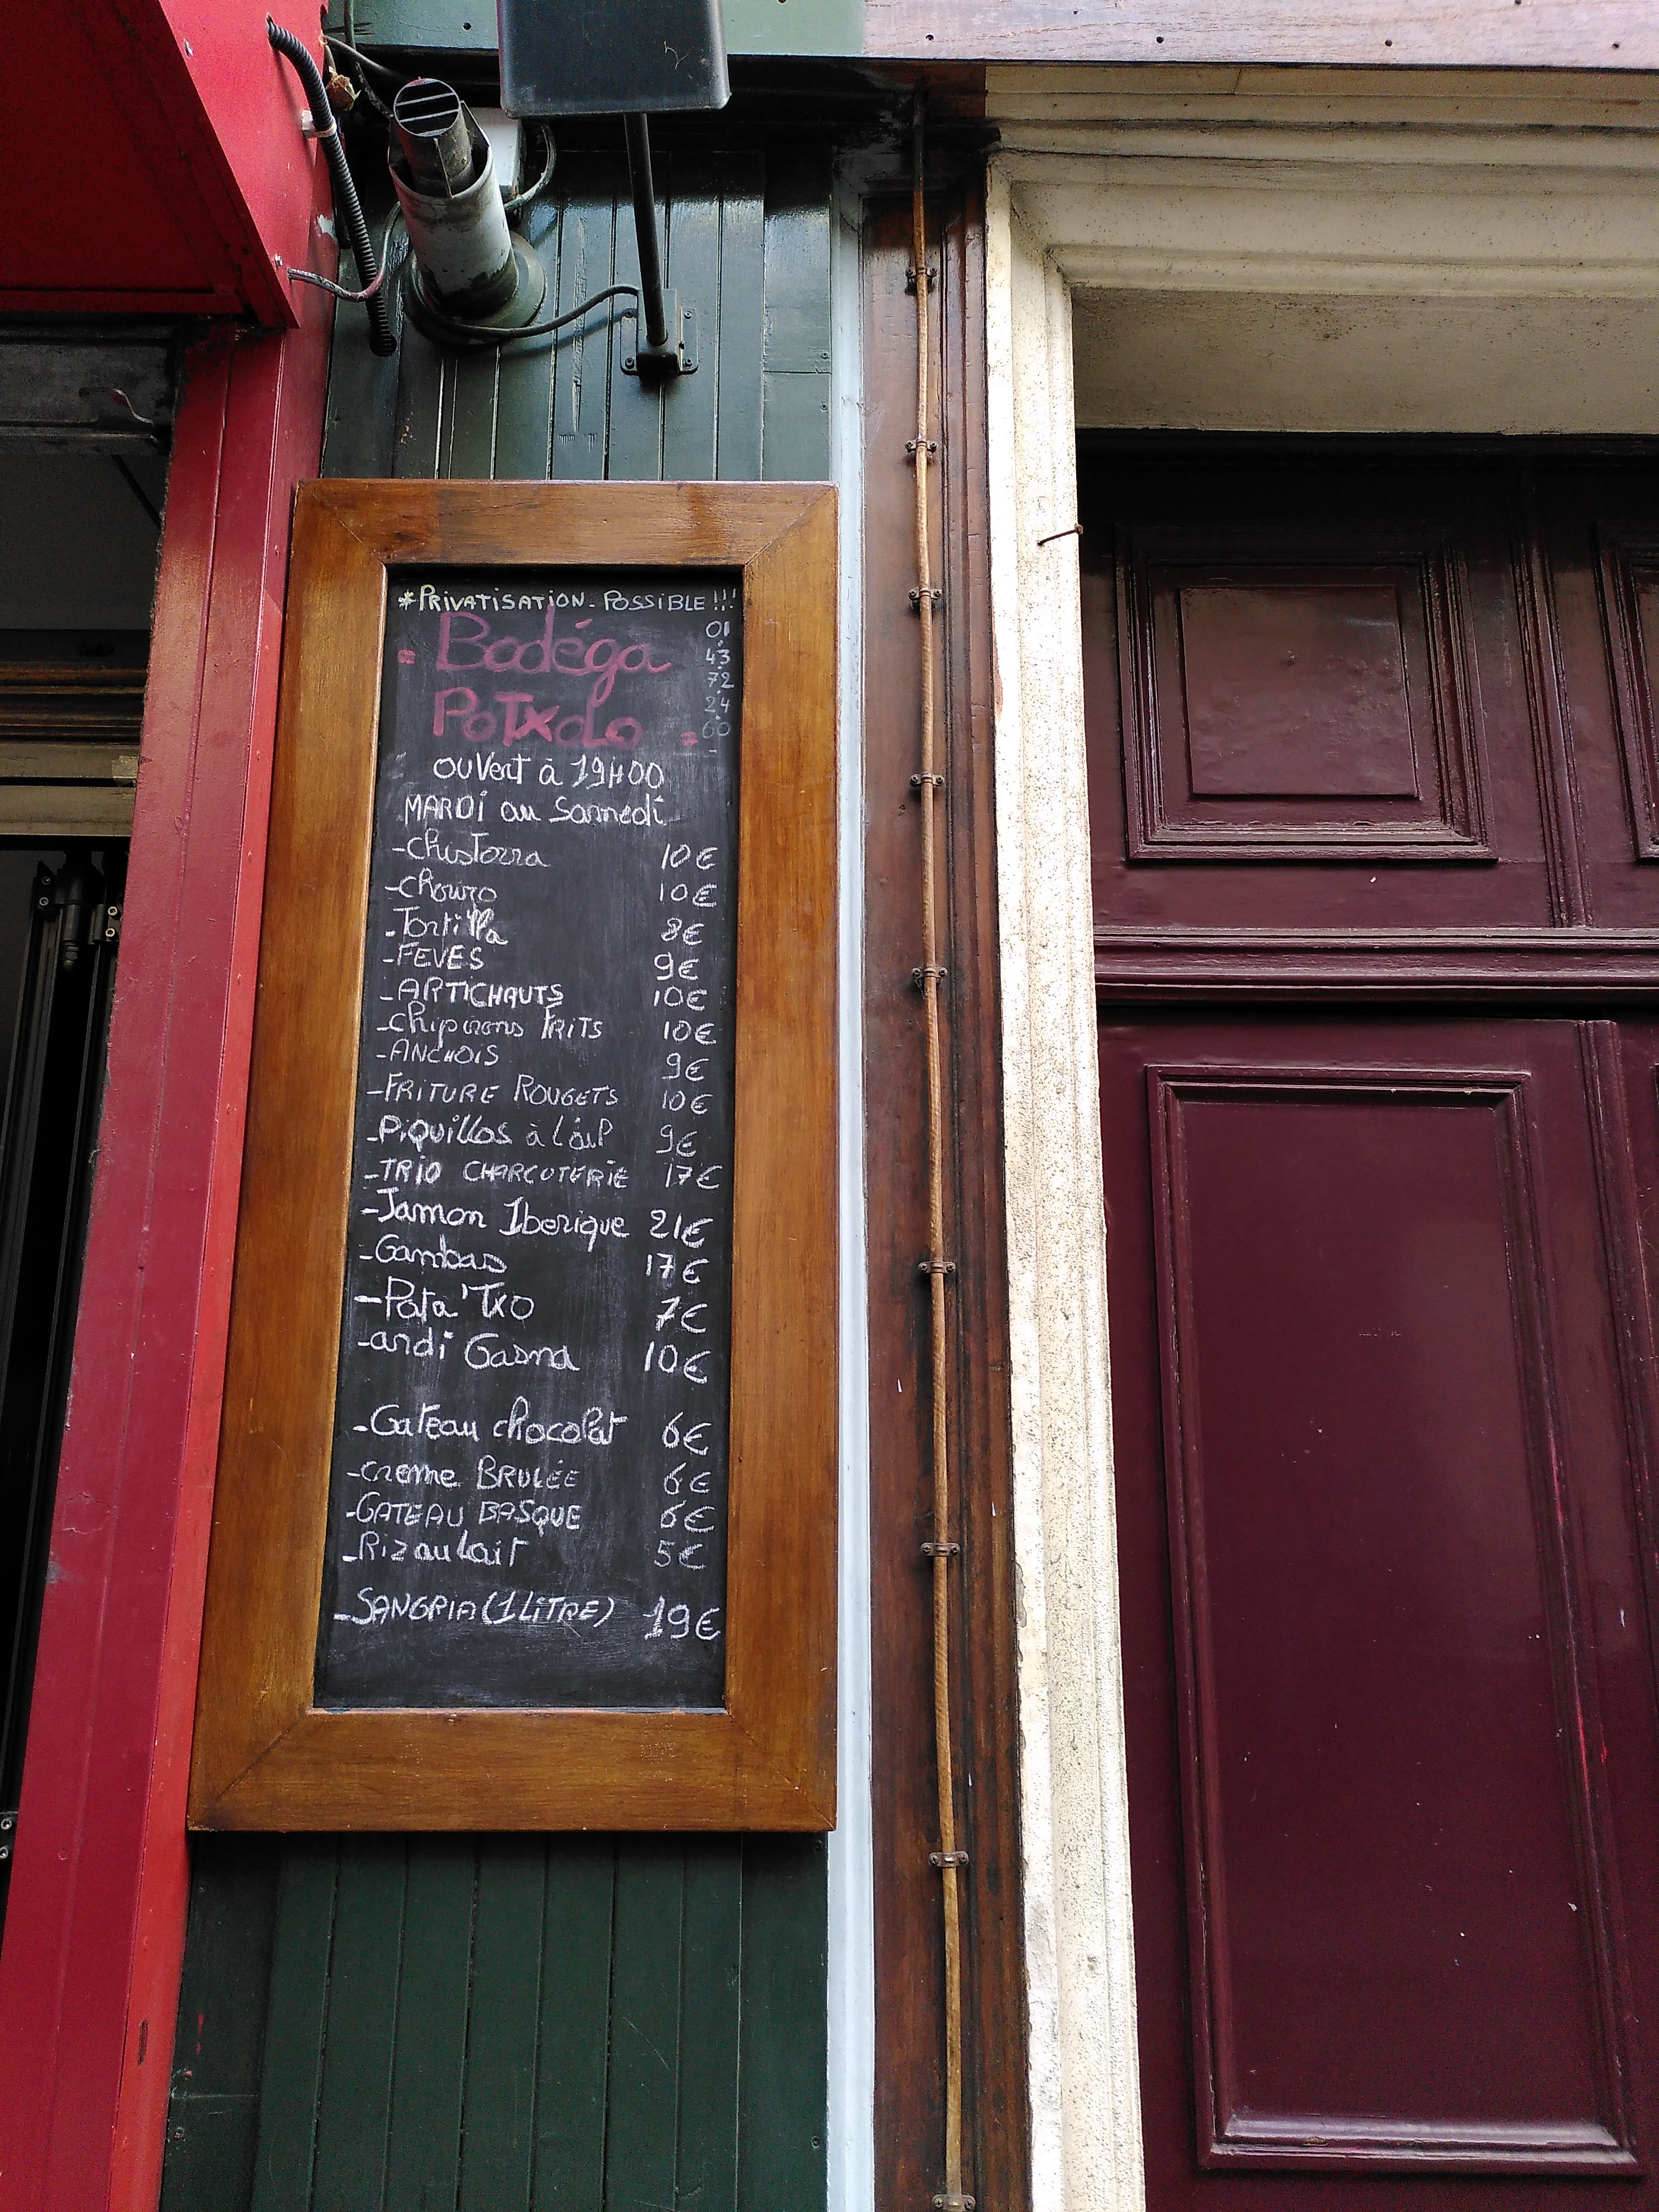 *PRIVATISATION - POSSIBLE !!!
Bodéga
PoTxolo
01
43
72
24
60
ouVert à 19H00
MARDI au Samedi
-chisTorra 10€
-chouro 10€
-Tortilla 8€
-FEVES 9€
-ARTICHAUTS 10€
-chipirons FRITS 10€
-ANCHOIS 9€
-FRITURE ROUGETS 10€
-PiQuillos à l'ail 9€
-TRIO CHARCUTERIE 17€
-Jamon Iberique 21€
-Gambas 17€
-Pata'Txo 7€
-ardi Gasna 10€
-Gateau chocolat 6€
-creme BRULÉE 6€
-GATEAU BASQUE 6€
-Riz au Lait 5€
-SANGRIA (1 LITRE) 19€